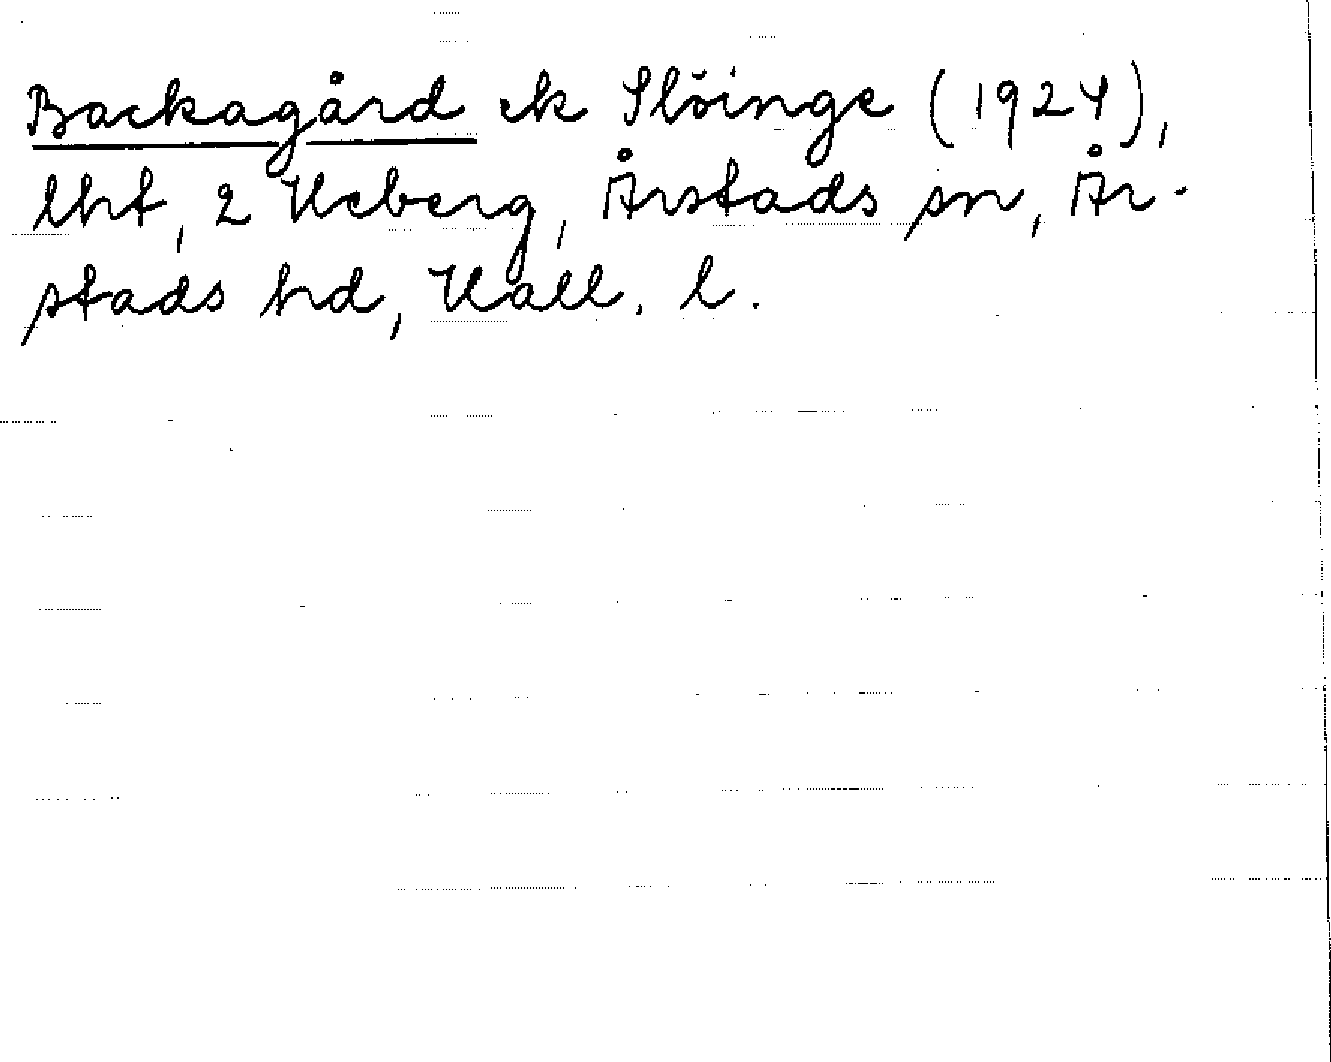 Backagård ek Slöinge (1924),
lht, 2 Heberg, Årstads sn, År-
stads hd, Hall. l.